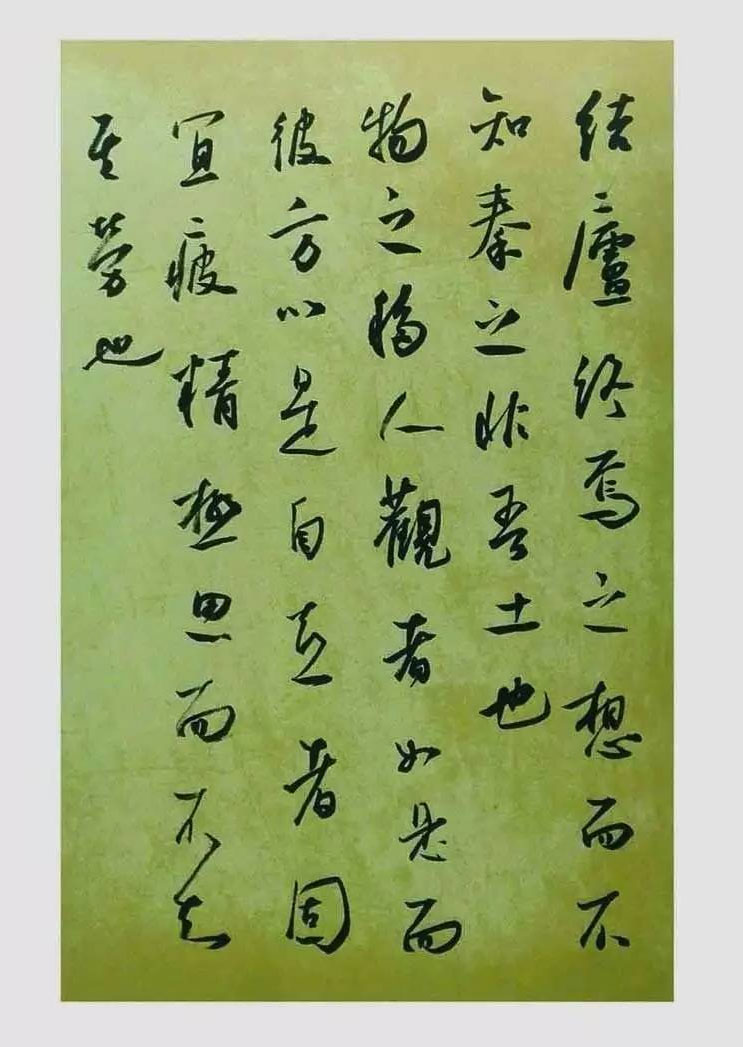 結廬終焉之想而不
知秦之非吾土也
物之移人觀者如是而
彼方以是自立者固
宜疲精極思而不知
其勞也